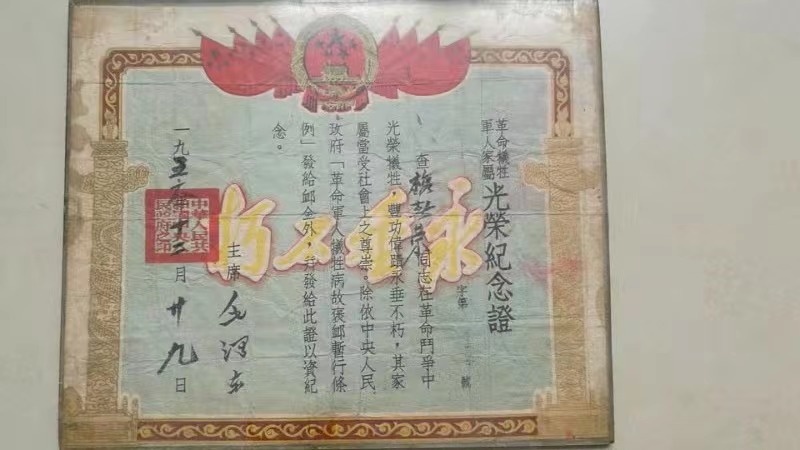 革命犧牲
軍人家屬
光榮紀念證
字第 號
查 同志在革命鬥爭中
光榮犧牲,豐功偉蹟永垂不朽,其家
屬當受社會上之尊崇。除依中央人民
政府「革命軍人犧牲病故褒卹暫行條
例」發給卹金外,并發給此證以資紀
念。
永垂不朽
主席 毛澤东
一九五 年十二月廿九日
中華人民共
和國中央人
民政府之印